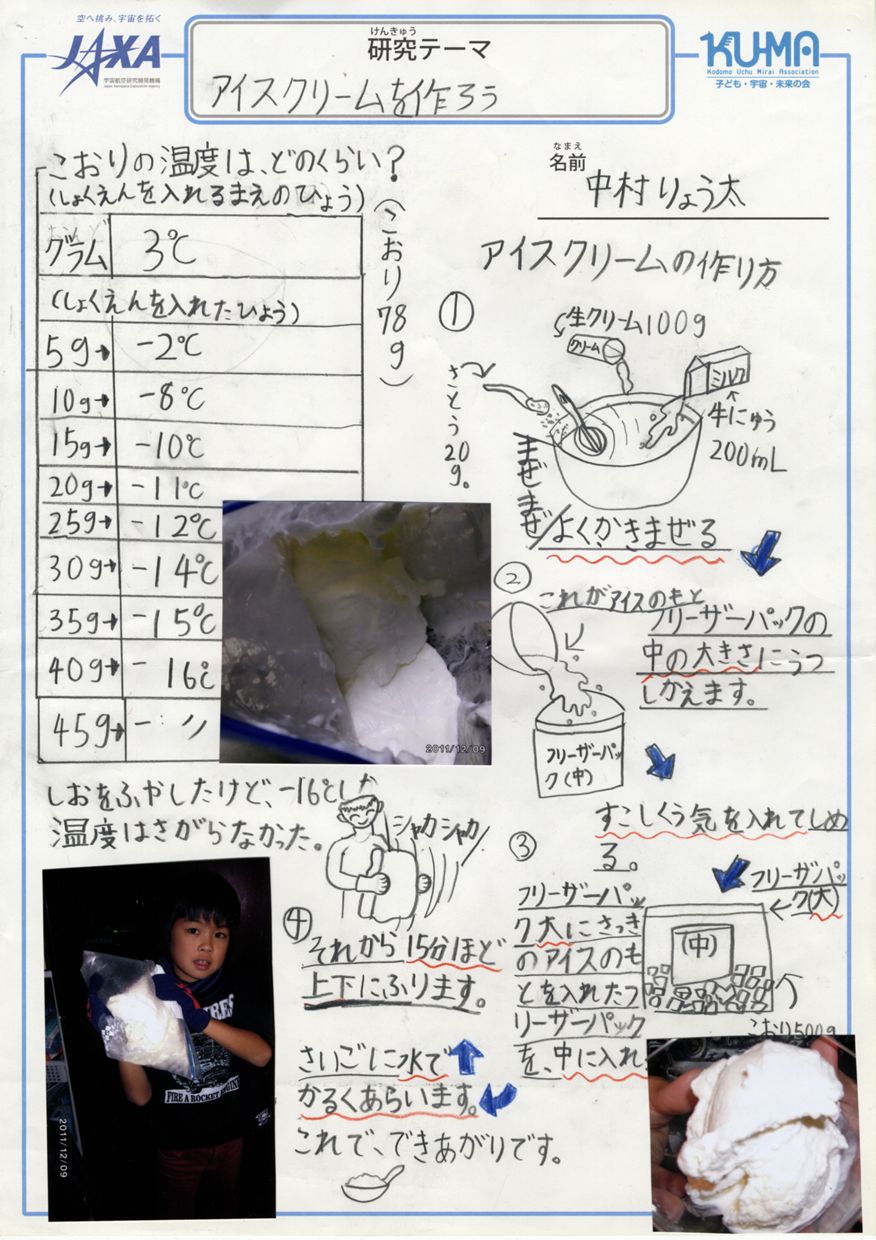 空へ挑み、宇宙を拓く
JAXA
宇宙航空研究開発機構
Japan Aerospace Exploration Agency
けんきゅう
研究テーマ
アイスクリームを作ろう
KU-MA
Kodomo Uchu Mirai Association
子ども・宇宙・未来の会
なまえ
名前
中村りょう太
こおりの温度は、どのくらい?
(しょくえんを入れるまえのひょう)
(こおり78g)
グラム 3℃
(しょくえんを入れたひょう)
5g→ -2℃
10g→ -8℃
15g→ -10℃
20g→ -11℃
25g→ -12℃
30g→ -14℃
35g→ -15℃
40g→ -16℃
45g→ - 〃
2011/12/09
しおをふやしたけど、-16℃しか
温度はさがらなかった。
2011/12/09
FIRE A ROCKET ENGINE
アイスクリームの作り方
①
生クリーム100g
クリーム
さとう20g。
ミルク
牛にゅう
200mL
まぜまぜ
よくかきまぜる
②
これがアイスのもと
フリーザーパックの
中の大きさにうつ
しかえます。
フリーザーパッ
ク(中)
すこしくう気を入れてしめ
る。
③
フリーザーパッ
ク大にさっき
のアイスのも
とを入れたフ
リーザーパック
を、中に入れ
フリーザパッ
ク(大)
(中)
こおり500g
シャカシャカ
④
それから15分ほど
上下にふります。
さいごに水で
かるくあらいます。
これで、できあがりです。